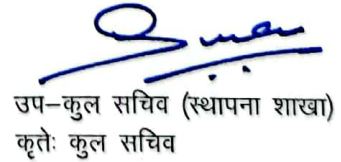 उप–कुल सचिव (स्थापना शाखा)
कृतेः कुल सचिव